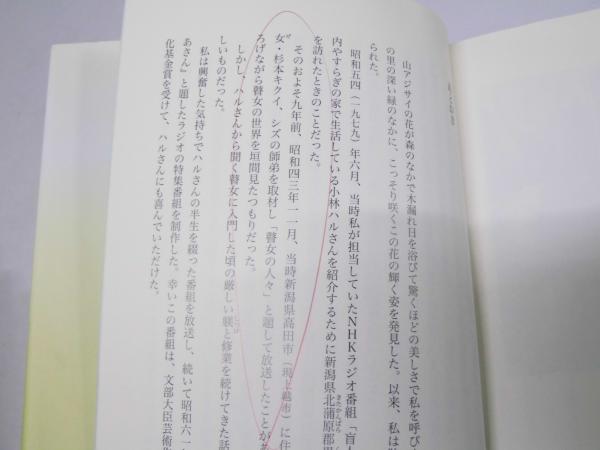 山アジサイの花が森のなかで木漏れ日を浴びて驚くほどの美しさで私を呼び
の里の深い緑のなかに、こっそり咲くこの花の輝く姿を発見した。以来、私は
られた。
昭和五四（一九七九）年六月、当時私が担当していたNHKラジオ番組「盲人
内やすらぎの家で生活している小林ハルさんを紹介するために新潟県北蒲原郡
を訪れたときのことだった。
そのおよそ九年前、昭和四三年一一月、当時新潟県高田市（現上越市）に住
女・杉本キクイ、シズの師弟を取材し「瞽女の人々」と題して放送したことが
ろげながら瞽女の世界を垣間見たつもりだった。
しかし、ハルさんから聞く瞽女に入門した頃の厳しい躾と修業を続けてきた話
しいものだった。
私は興奮した気持ちでハルさんの半生を綴った番組を放送し、続いて昭和六一
あさん』と題したラジオの特集番組を制作した。幸いこの番組は、文部大臣芸術
化基金賞を受けて、ハルさんにも喜んでいただけた。